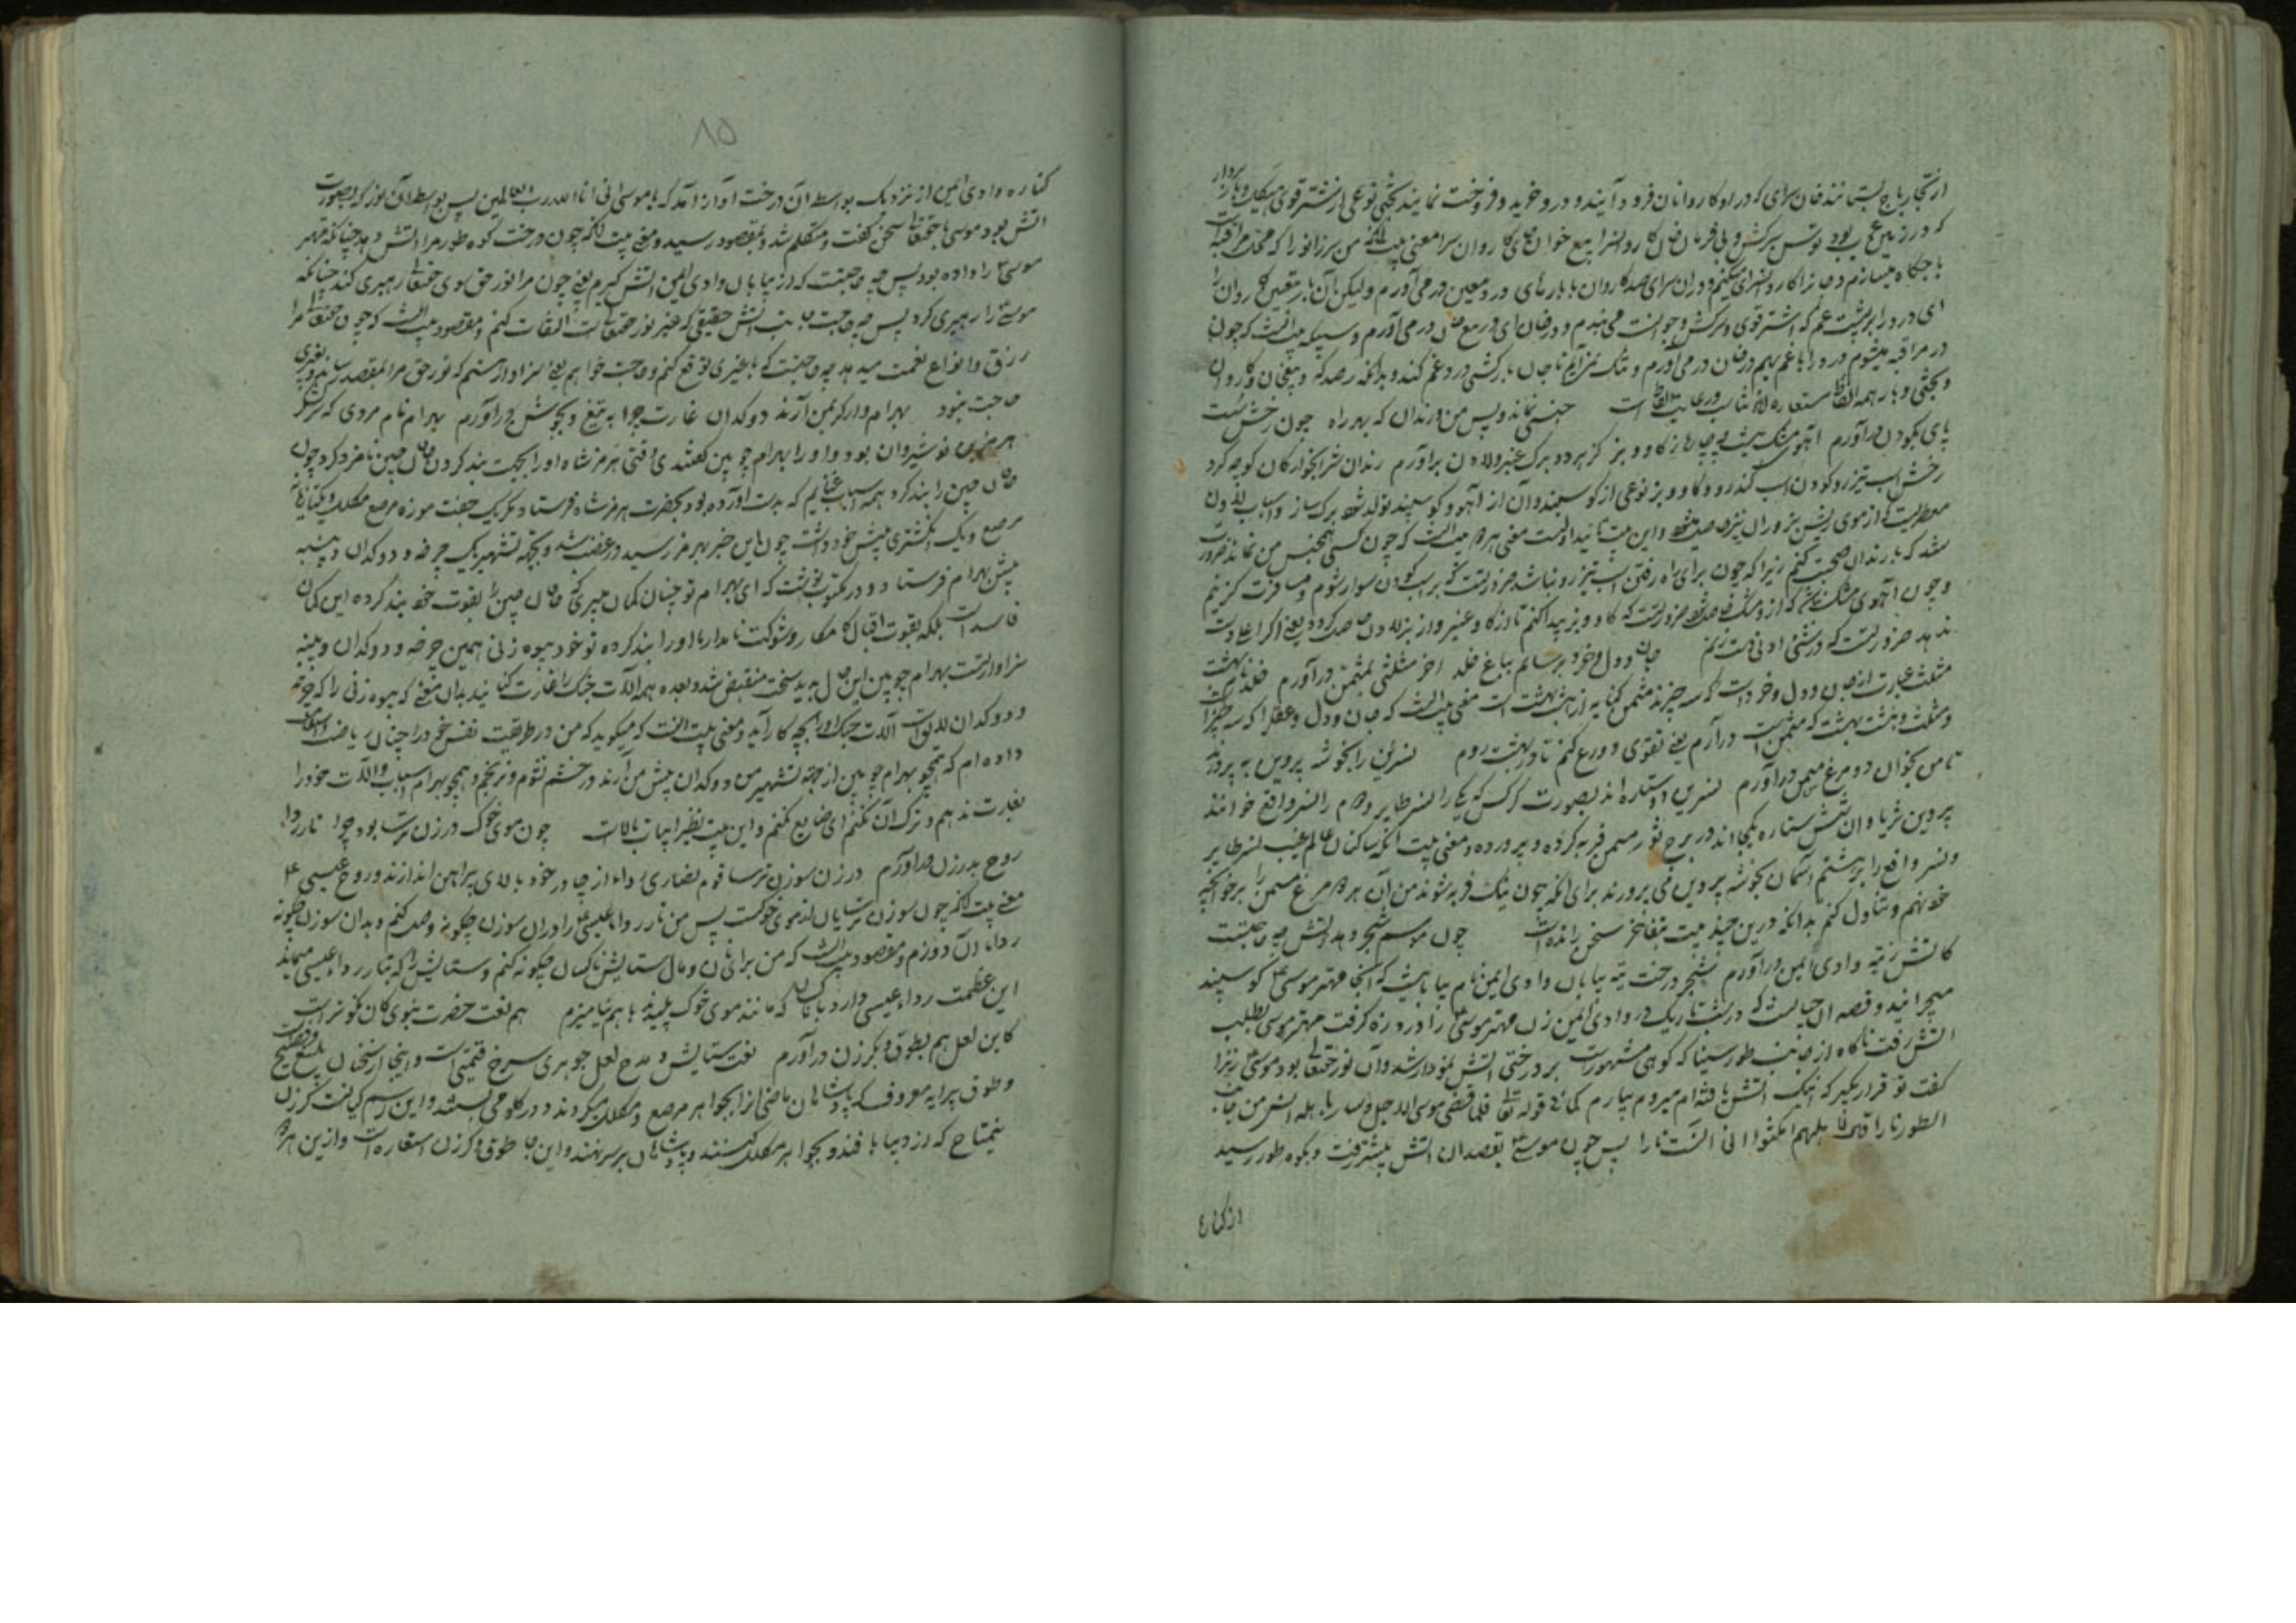 از تجار باج بستانند خان سرای که در او کاروانان فرود آیند و در و خرید و فروخت نمایند بختی نوعی از شتر قوی هیکل و بار بردار
که در زمین عرب بود توسن سرکش و بی فرمان کاروانسرا بیع خوان کاروان سرا معنی بیت آنکه من سر زانو را که محل مراقبه
باجگاه میسازم و کاروانسرای میکنم و در آن سرای صد کاروان با بارهای درد معین در می آورم ولیکن آن بار معین کاروان را
ای درد را بر پشت غم که اشتر قوی و سرکش و جوانست می نهم و در خان ای در مربع در می آورم و سبکه بیت آنست که چون
در مراقبه میشوم درد را با غم بهم در خان در می آورم و تنگ نمی آیم تا جان بارکشی درد و غم کند و بدانکه رصدگه و خان و کاروان
و بختی و بار همه الفاظ استعاره اند جنسی نماند و پس من و رندان که بهر راه چون رخش نیست
پای بکودن در آورم آهوی مشک نیست چه چاره ز گاو و بز کز هر دو برگ عنبر و لادن بر آورم رندان شرابخوارگان کوچه گرد
رخش اسب تیزرو کودن اسب کندرو و گاو و بز نوعی از گوسپند و آن از آهو و گوسپند تولد شود برگ ساز و اسباب لادن
معطریست که از موی ریش بز و ران نیز حاصل میشود و این بیت تائید اولست معنی هر دو بیت آنست که چون کسی همجنس من نماند ضرورت
شد که با رندان صحبت کنم زیرا که چون برای راه رفتن اسب تیزرو نباشد ضرورتست که بر اسب کودن سوار شوم و مسافرت گزینم
و چون آهوی مشک نیست که از و مشک حاصل شود ضرورتست که گاو و بز پیدا کنم تا از گاو عنبر و از بز لادن حاصل گردد یعنی اگر اعلا دست
ندهد ضرورتست که در تمنی ادنی جان و دل و خرد برسانم بباغ خلد آخر مثلثی بمثمن در آورم خلد نام بهشت
مثلث عبارت از جان و دل و خرد است که سه چیزند مثمن کنایه از هشت بهشت است معنی بیت آنست که جان و دل و عقل را که سه چیز
و مثلث و هشت بهشت که مثمن است در آرم یعنی تقوی و ورع کنم تا در بهشت روم نسرین را بخوشه پروین بپرورند
تا من بخوان دو مرغ مسمن در آورم نسرین دو ستاره اند بصورت کرکس که یکی را نسر طایر و دوم را نسر واقع خوانند
پروین ثریا و آن شش ستاره یکجا اند در برج ثور مسمن فربه کرده و پرورده و معنی بیت آنکه ساکنان عالم غیب نسر طایر
و نسر واقع را بر هشتم آسمان بخوشه پروین می پرورند برای آنکه چون نیک فربه شوند من آن هر دو مرغ مسمن را بر خوانچه
خود نهم و تناول کنم بدانکه درین چند بیت بتفاخر سخن رانده است چون مو سم شجر دهد آتش چه حاجتست
کاتش ز تیه وادی ایمن در آورم شجر درخت تیه بیابان وادی ایمن نام بیابانیست که آنجا مهتر موسی ع گوسپند
میچرانید و قصه آن چنانست که در شب تاریک در وادی ایمن زن مهتر موسی ع را درد زه گرفت مهتر موسی بطلب
آتش رفت ناگاه از جانب طور سینا که کوهی مشهور است بر درختی آتش نمودار شد و آن نور حقتعالی بود موسی ع زن را
گفت تو قرار بگیر که اینک آتش یافته ام میروم بیارم کما فی قوله تعالی فلما قضی موسی الاجل و سار باهله آنس من جانب
الطور نارا قال لاهله امکثوا انی آنست نارا پس چون موسی ع بقصد آن آتش پیشتر رفت و بکوه طور رسید
از کناره
۸۵
کناره وادی ایمن از نزدیک بواسطه آن درخت آواز آمد که یا موسی انی انا الله رب العالمین پس بواسطه آن نور که بصورت
آتش بود موسی با حقتعالی سخن گفت و متکلم شد و بمقصود رسید و معنی بیت آنکه چون درخت کوه طور مرا آتش دهد چنانکه مهتر
موسی ع را داده بود پس چه حاجتست که از بیابان وادی ایمن آتش گیرم یعنی چون مرا نور حق سوی حقتعالی رهبری کند چنانکه
موسی ع را رهبری کرد پس چه حاجت جانب آتش حقیقی که غیر نور حقتعالی است التفات کنم و مقصود بیت آنست که چون حقتعالی مرا
رزق و انواع نعمت میدهد چه حاجتست که با غیری توقع کنم و حاجت خواهم یعنی سزاوار هستم که نور حق مرا بمقصد رساند و بغیری
حاجت نبود بهرام وار گر بمن آرند دوکدان غارت چرا به تیغ و بجوشن در آورم بهرام نام مردی که سرلشکر
هرمز بن نوشیروان بود و او را بهرام چوبین گفتندی وقتی هرمز شاه او را بجهت بند کردن خاقان چین نامزد کرد چون
خاقان چین را بند کرد همه اسباب غنایم که بدست آورده بود بحضرت هرمز شاه فرستاد مگر یک جفت موزه مرصع مکلل و یکتا
مرصع و یک انگشتری پیش خود داشت چون این خبر بهرمز رسید در غضب شد و بجهت تشهیر یک چرخه و دوکدان و پنبه
پیش بهرام فرستاد و در مکتوب نوشت که ای بهرام تو چنان گمان میبری که خاقان چین را بقوت خود بند کرده این گمان
فاسد است بلکه بقوت اقبال کامکار و شوکت نامدار ما او را بند کرده تو خود بیوه زنی همین چرخه و دوکدان و پنبه
سزاوار تست بهرام چوبین این حال بدید سخت منقبض شد و بعده همه آلات جنگ را غارت کنانید بدان معنی که بیوه زنی را که چرخه
و دوکدان لایق است آلات جنگ او را بچه کار آید و معنی بیت آنست که میگوید که من در طریقت نفس خود را چنان ریاضت
داده ام که همچو بهرام چوبین از جهة تشهیر من دوکدان پیش من آرند در خشم نشوم و نرنجم و همچو بهرام اسباب و آلات خود را
بغارت ندهم و ترک آن نکنم ای ضایع نکنم و این بیت نظیر ابیات بالاست چون موی خوک درزن ترسا بود چرا تار ردا
روح بدرزن در آورم درزن سوزن ترسا قوم نصاری رداء از چادر خود بالای پیراهن اندازند و روح عیسی ع
معنی بیت آنکه چون سوزن ترسایان از موی خوکست پس من تار رداء عیسی ع را در آن سوزن چگونه وصل کنم و بدان سوزن چگونه
رداء آن دوزم و مقصود بیت آنست که من برای نان و مال ستایش ناکسان چگونه کنم و ستایش را که بتار رداء عیسی میماند
این عظمت رداء عیسی دارد با ناکسان که مانند موی خوک پلیدند با هم نیامیزم هم نعت حضرت نبوی کان نکوتر است
کاین لعل هم بطوق و بگرزن در آورم نعت ستایش و مدح لعل جوهری سرخ قیمتی است و اینجا از سخنان بلیغ و فصیح
و طوق پیرایه معروف که پادشاهان ماضی از جواهر مرصع و مکلل میکردند و در گلو می بستند و این رسم کیانست گرزن
نیمتاج که از دیبا بافند و بجواهر مکلل کنند و پادشاهان بر سر نهند و این جا طوق و گرزن استعاره است و ازین هر دو